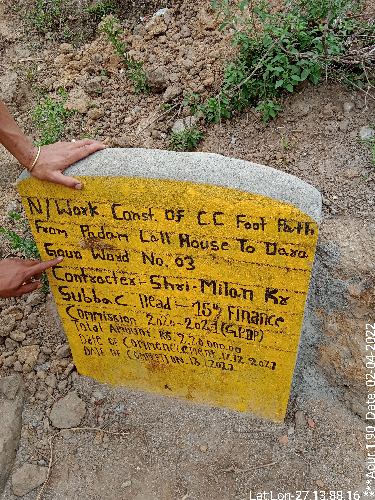 N/Work. Const. Of CC Foot Path
From Padam Lall House To Dara
Goun Word No. 03
Contractor- Shri- Milan Kr
Subba C. Head - 15th Finance
Commission 2020-2021 (GPDP)
Total Amount Rs
DATE OF COMMENCEMENT
DATE OF COMPLETION
Lat Lon-27 13 88 16
Date, 02-04-2022